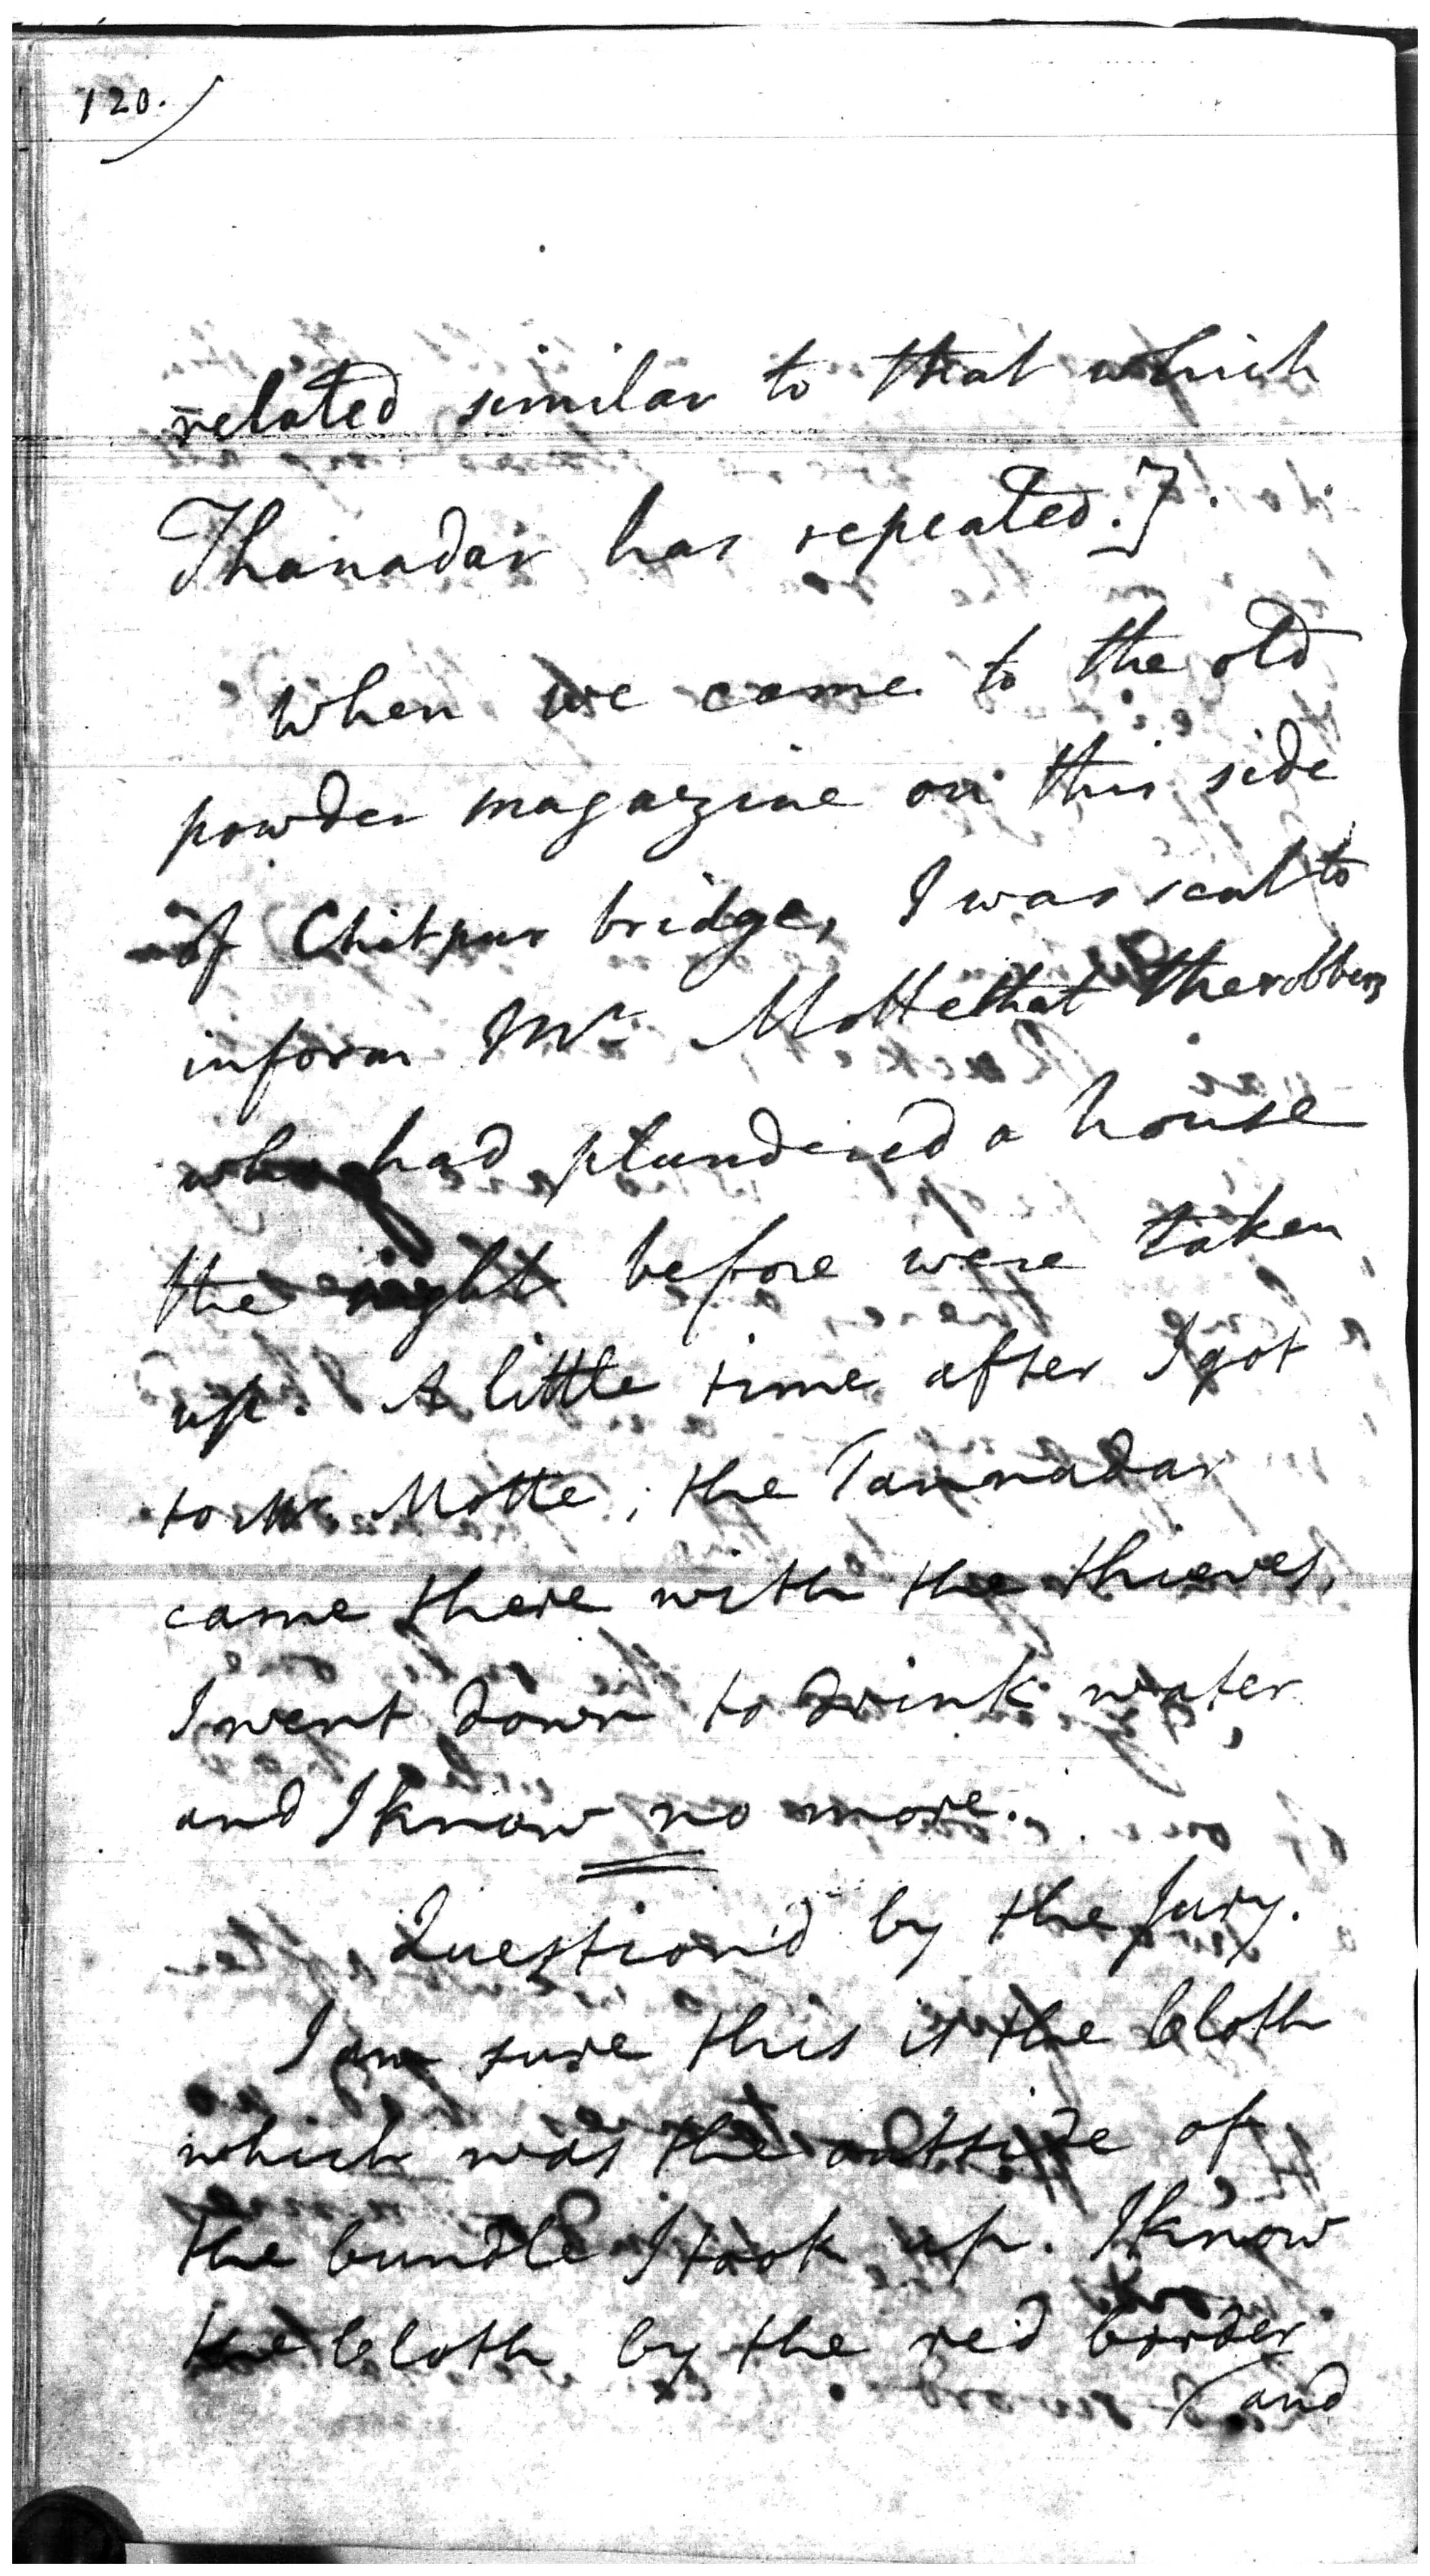 120.
related similar to that which
Thanadar has repeated.]
When we came to the old
powder magazine on this side
of Chitpur bridge, I was sent to
inform Mr Motte that the robbers
who had plundered a house
the night before were taken
up. A little time after I got
to Mr Motte, the Tannadar
came there with the thieves,
I went down to drink water,
and I know no more.
Question'd by the Jury.
I am sure this is the Cloth
which was the outside of
the bundle I took up. I know
the Cloth by the red border
and